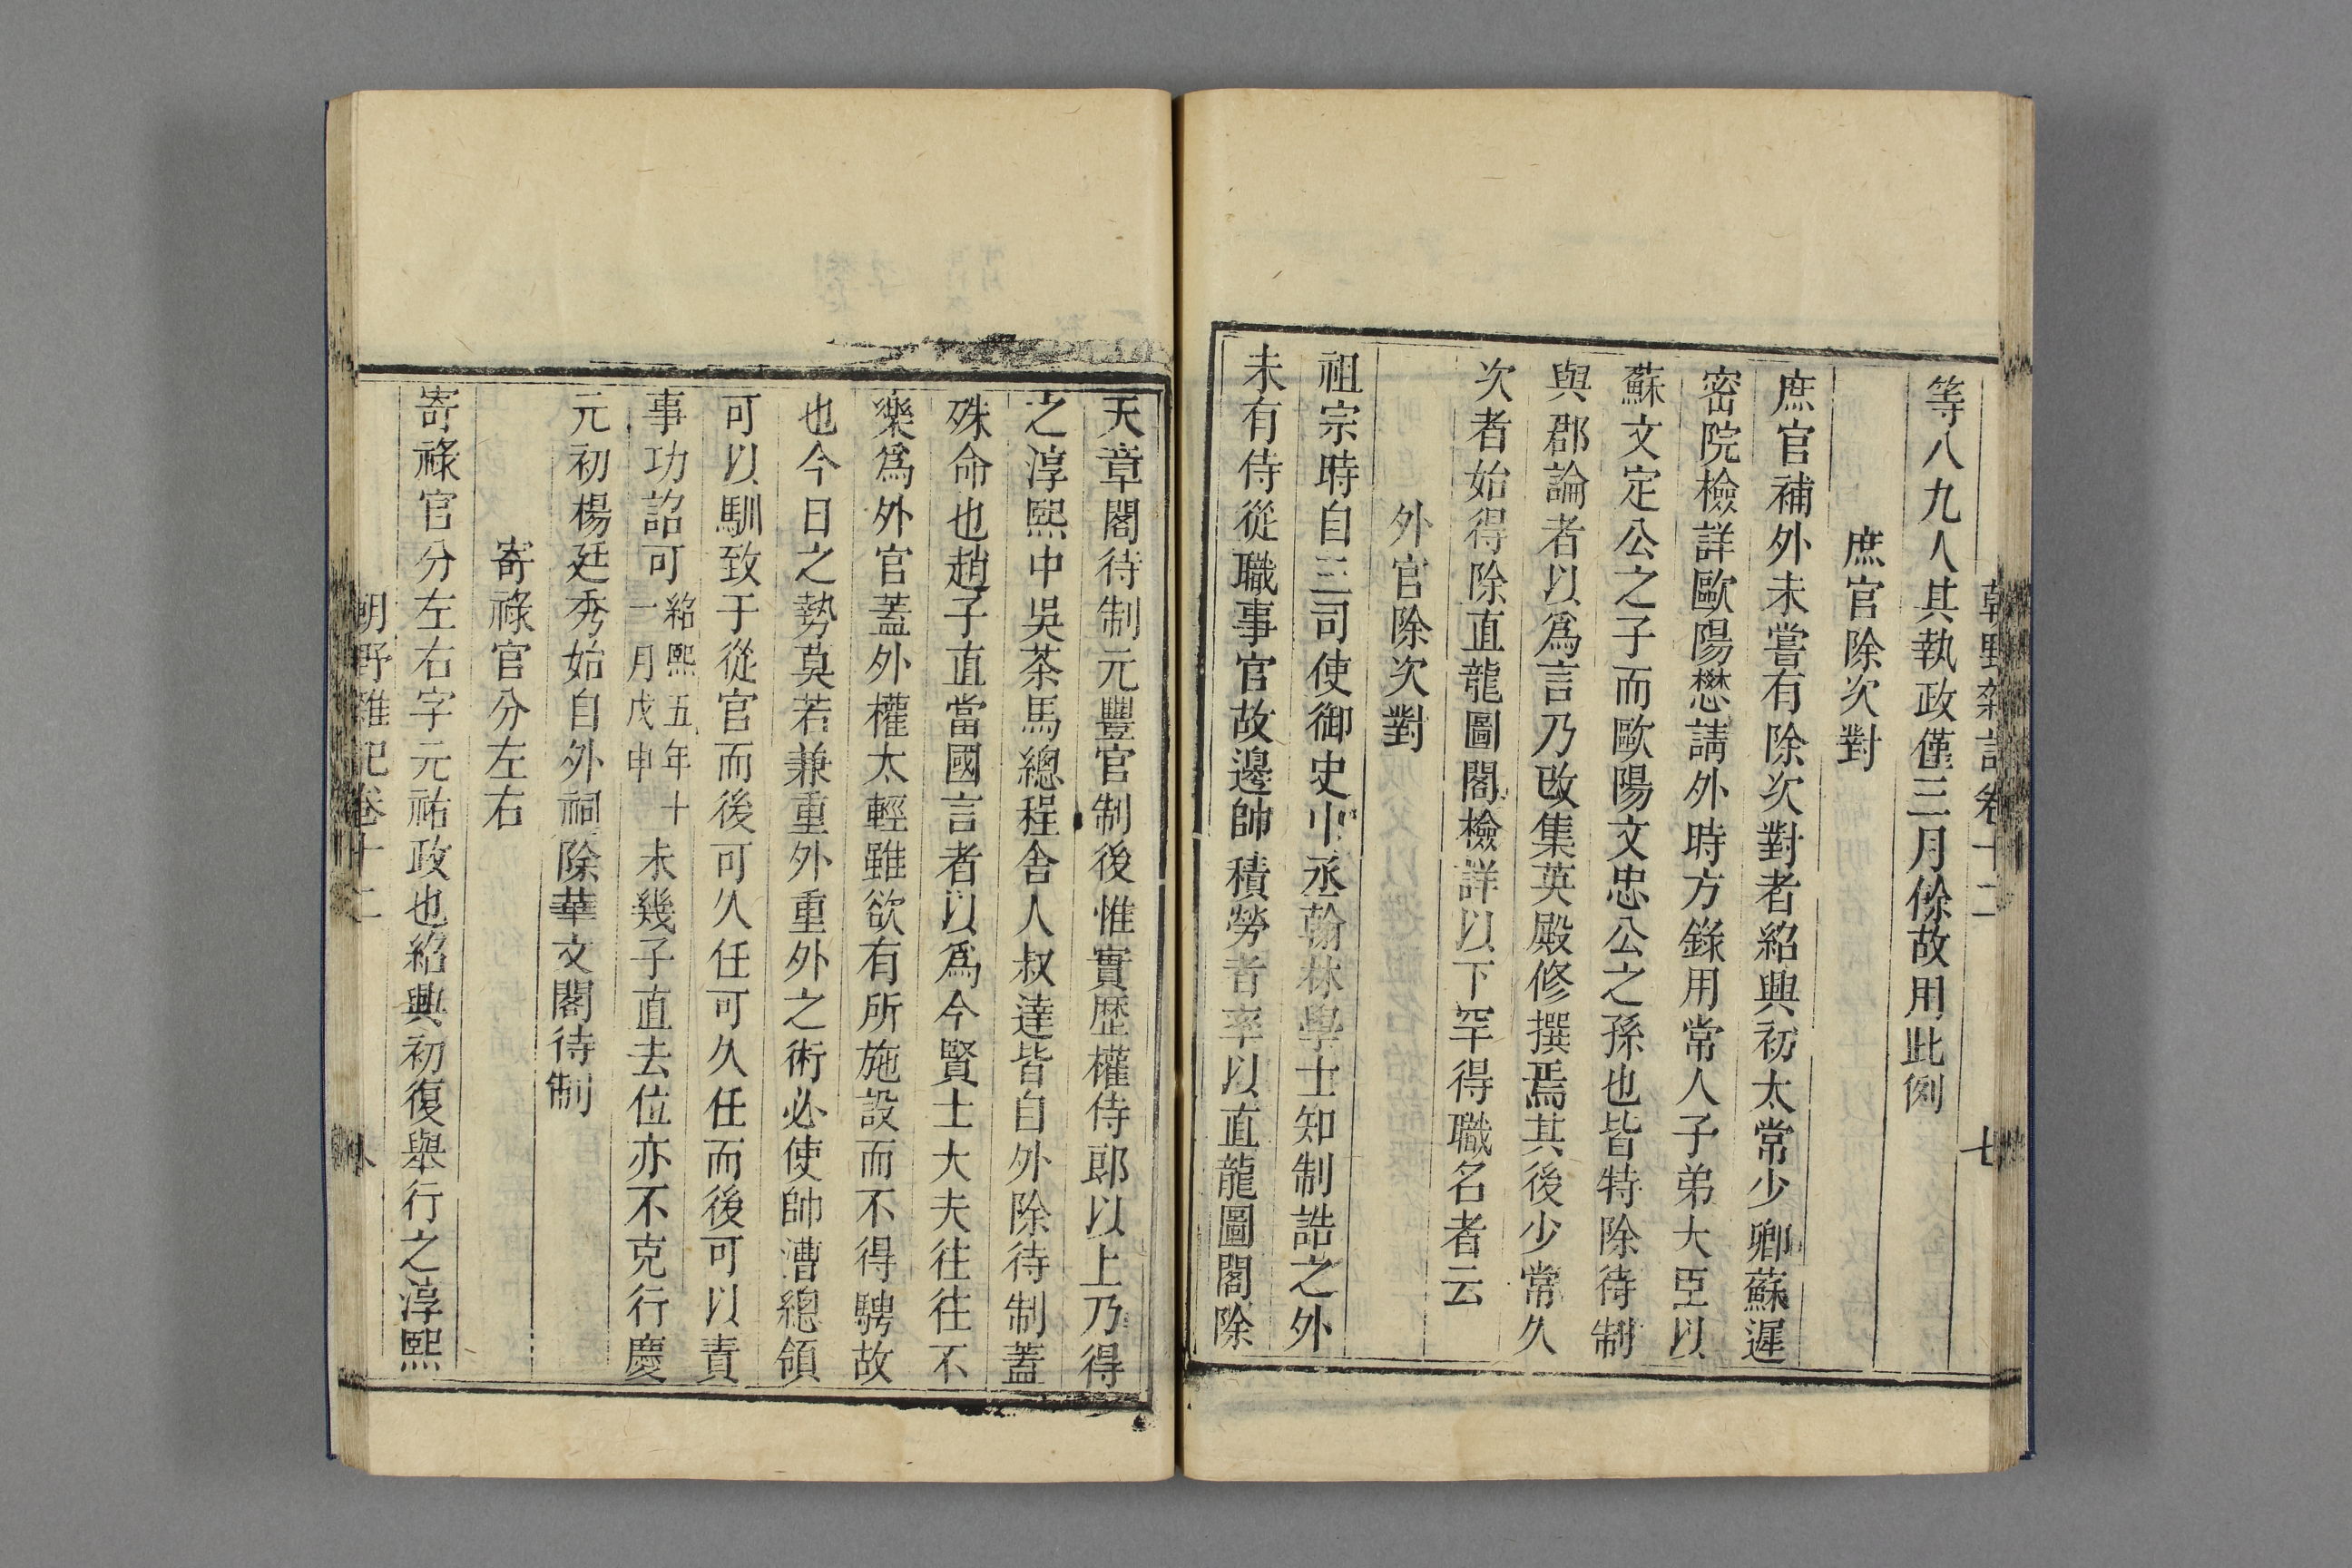 朝野雜記卷十二 七
等八九人其執政僅三月餘故用此例
庶官除次對
庶官補外未嘗有除次對者紹興初太常少卿蘇遲
密院檢詳歐陽懋請外時方錄用常人子弟大臣以
蘇文定公之子而歐陽文忠公之孫也皆特除待制
與郡論者以爲言乃改集英殿修撰焉其後少常久
次者始得除直龍圖閣檢詳以下罕得職名者云
外官除次對
祖宗時自三司使御史中丞翰林學士知制誥之外
未有侍從職事官故邊帥積勞者率以直龍圖閣除
天章閣待制元豐官制後惟實歷權侍郎以上乃得
之淳熙中吳茶馬總程舍人叔達皆自外除待制蓋
殊命也趙子直當國言者以爲今賢士大夫往往不
樂爲外官蓋外權太輕雖欲有所施設而不得騁故
也今日之勢莫若兼重外重外之術必使帥漕總領
可以馴致于從官而後可久任可久任而後可以責
事功詔可紹熙五年十一月戊申未幾子直去位亦不克行慶
元初楊廷秀始自外祠除華文閣待制
寄祿官分左右
寄祿官分左右字元祐政也紹興初復舉行之淳熙
朝野雜記卷十二 八